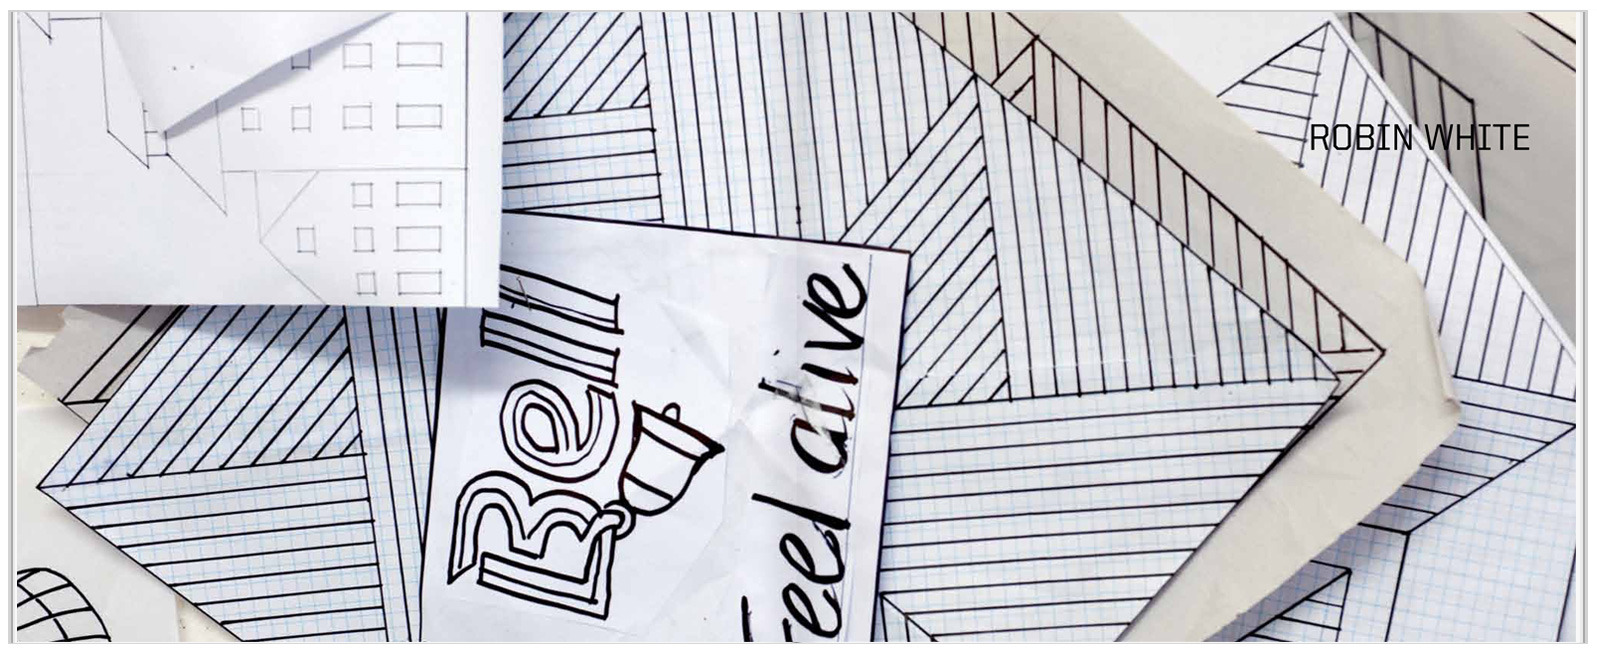 ROBIN WHITE
Bell
Feel alive